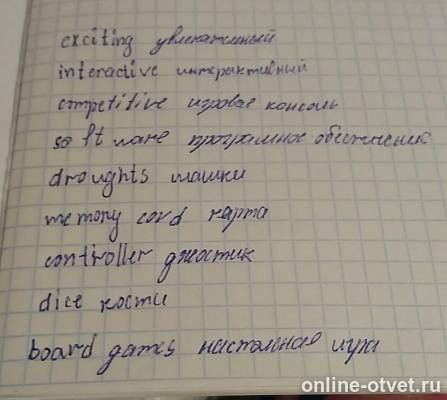 exciting увлекательный
interactive интерактивный
competitive игровая консоль
software программное обеспечение
droughts шашки
memory cord карта
controller джостик
dice кости
board games настольная игра
online-otvet.ru